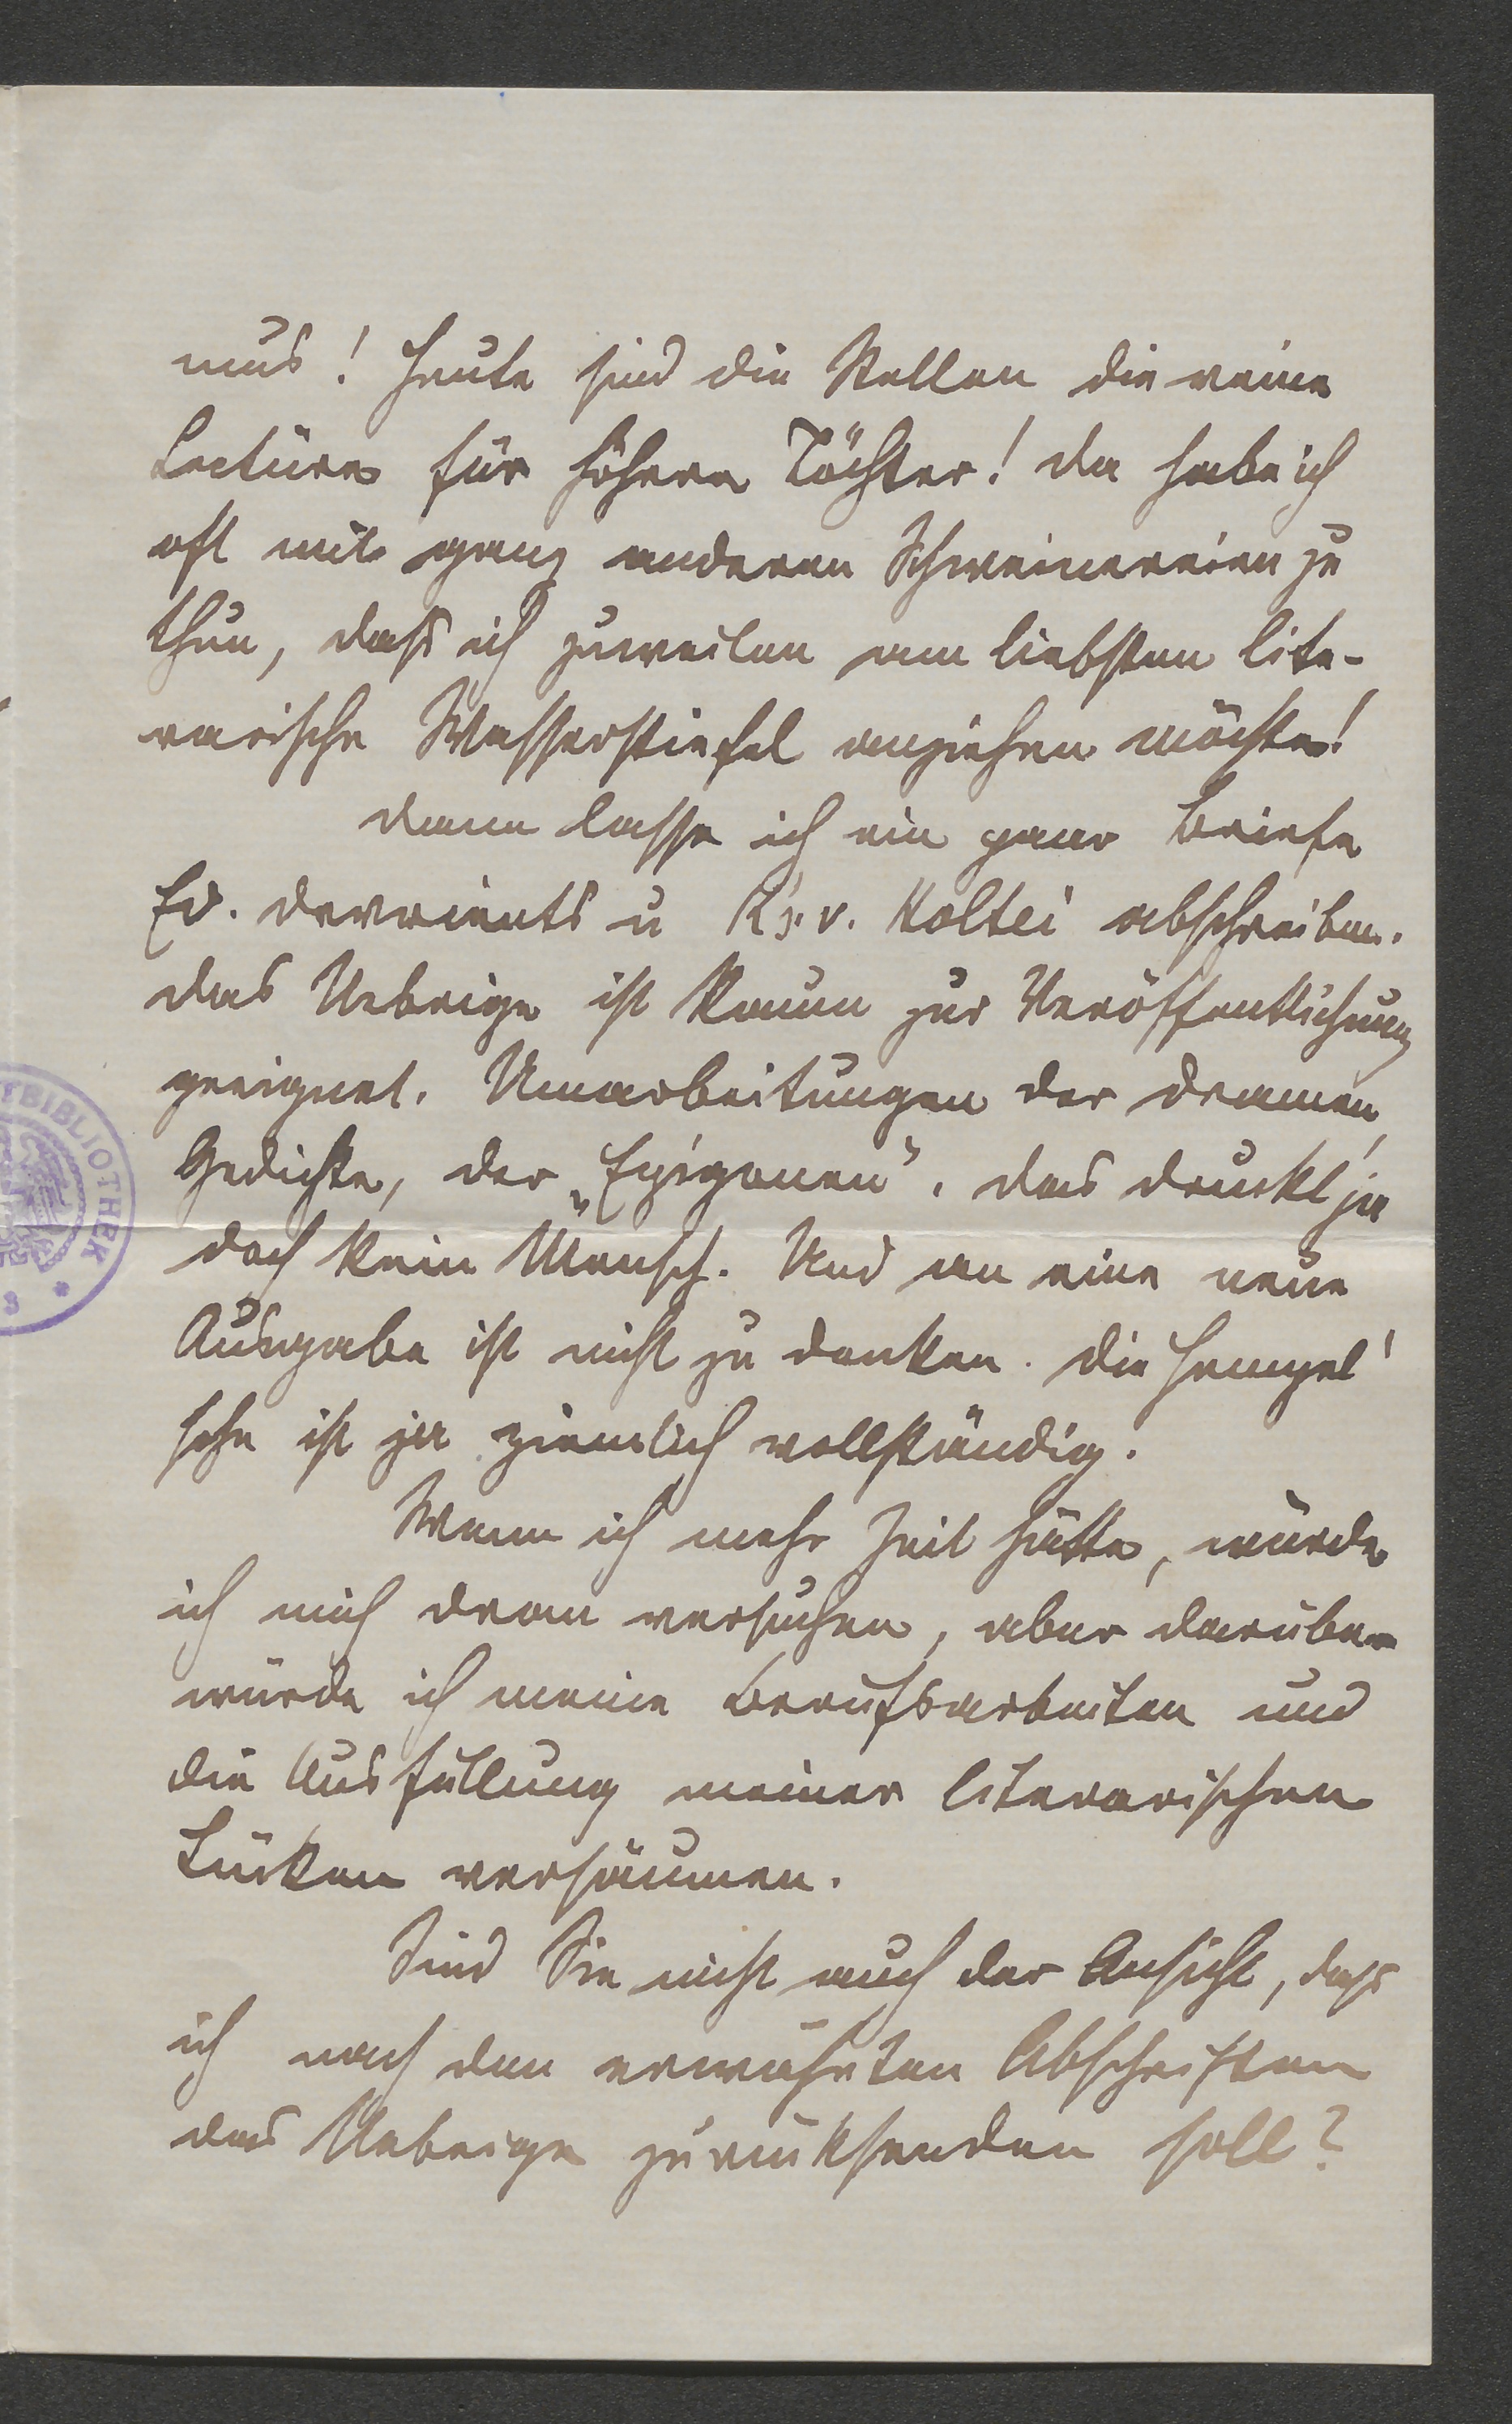 mus! Heute sind die Stellen die reine
Lectüre für höhere Töchter! Da habe ich
oft mit ganz anderen Schweinereien zu
thun, daß ich zuweilen am liebsten lite-
rarische Wasserstiefel anziehen möchte!
Dann lasse ich ein paar Briefe
Ed. Devrients u K's. v. Holtei abschreiben.
Das Uebrige ist kaum zur Veröffentlichung
geeignet. Umarbeitungen der Dramen,
Gedichte, der „Epigonen“, das druckt ja
doch kein Mensch. Und an eine neue
Ausgabe ist nicht zu denken. Die Hempel'
sche ist ja ziemlich vollständig.
Wenn ich mehr Zeit hätte, würde
ich mich dran versuchen, aber darüber
würde ich meine Berufsarbeiten und
die Ausfüllung meiner literarischen
Lücken versäumen.
Sind Sie nicht auch der Ansicht, daß
ich nach den erwähnten Abschriften
das Uebrige zurücksenden soll?
TBIBLIOTHEK